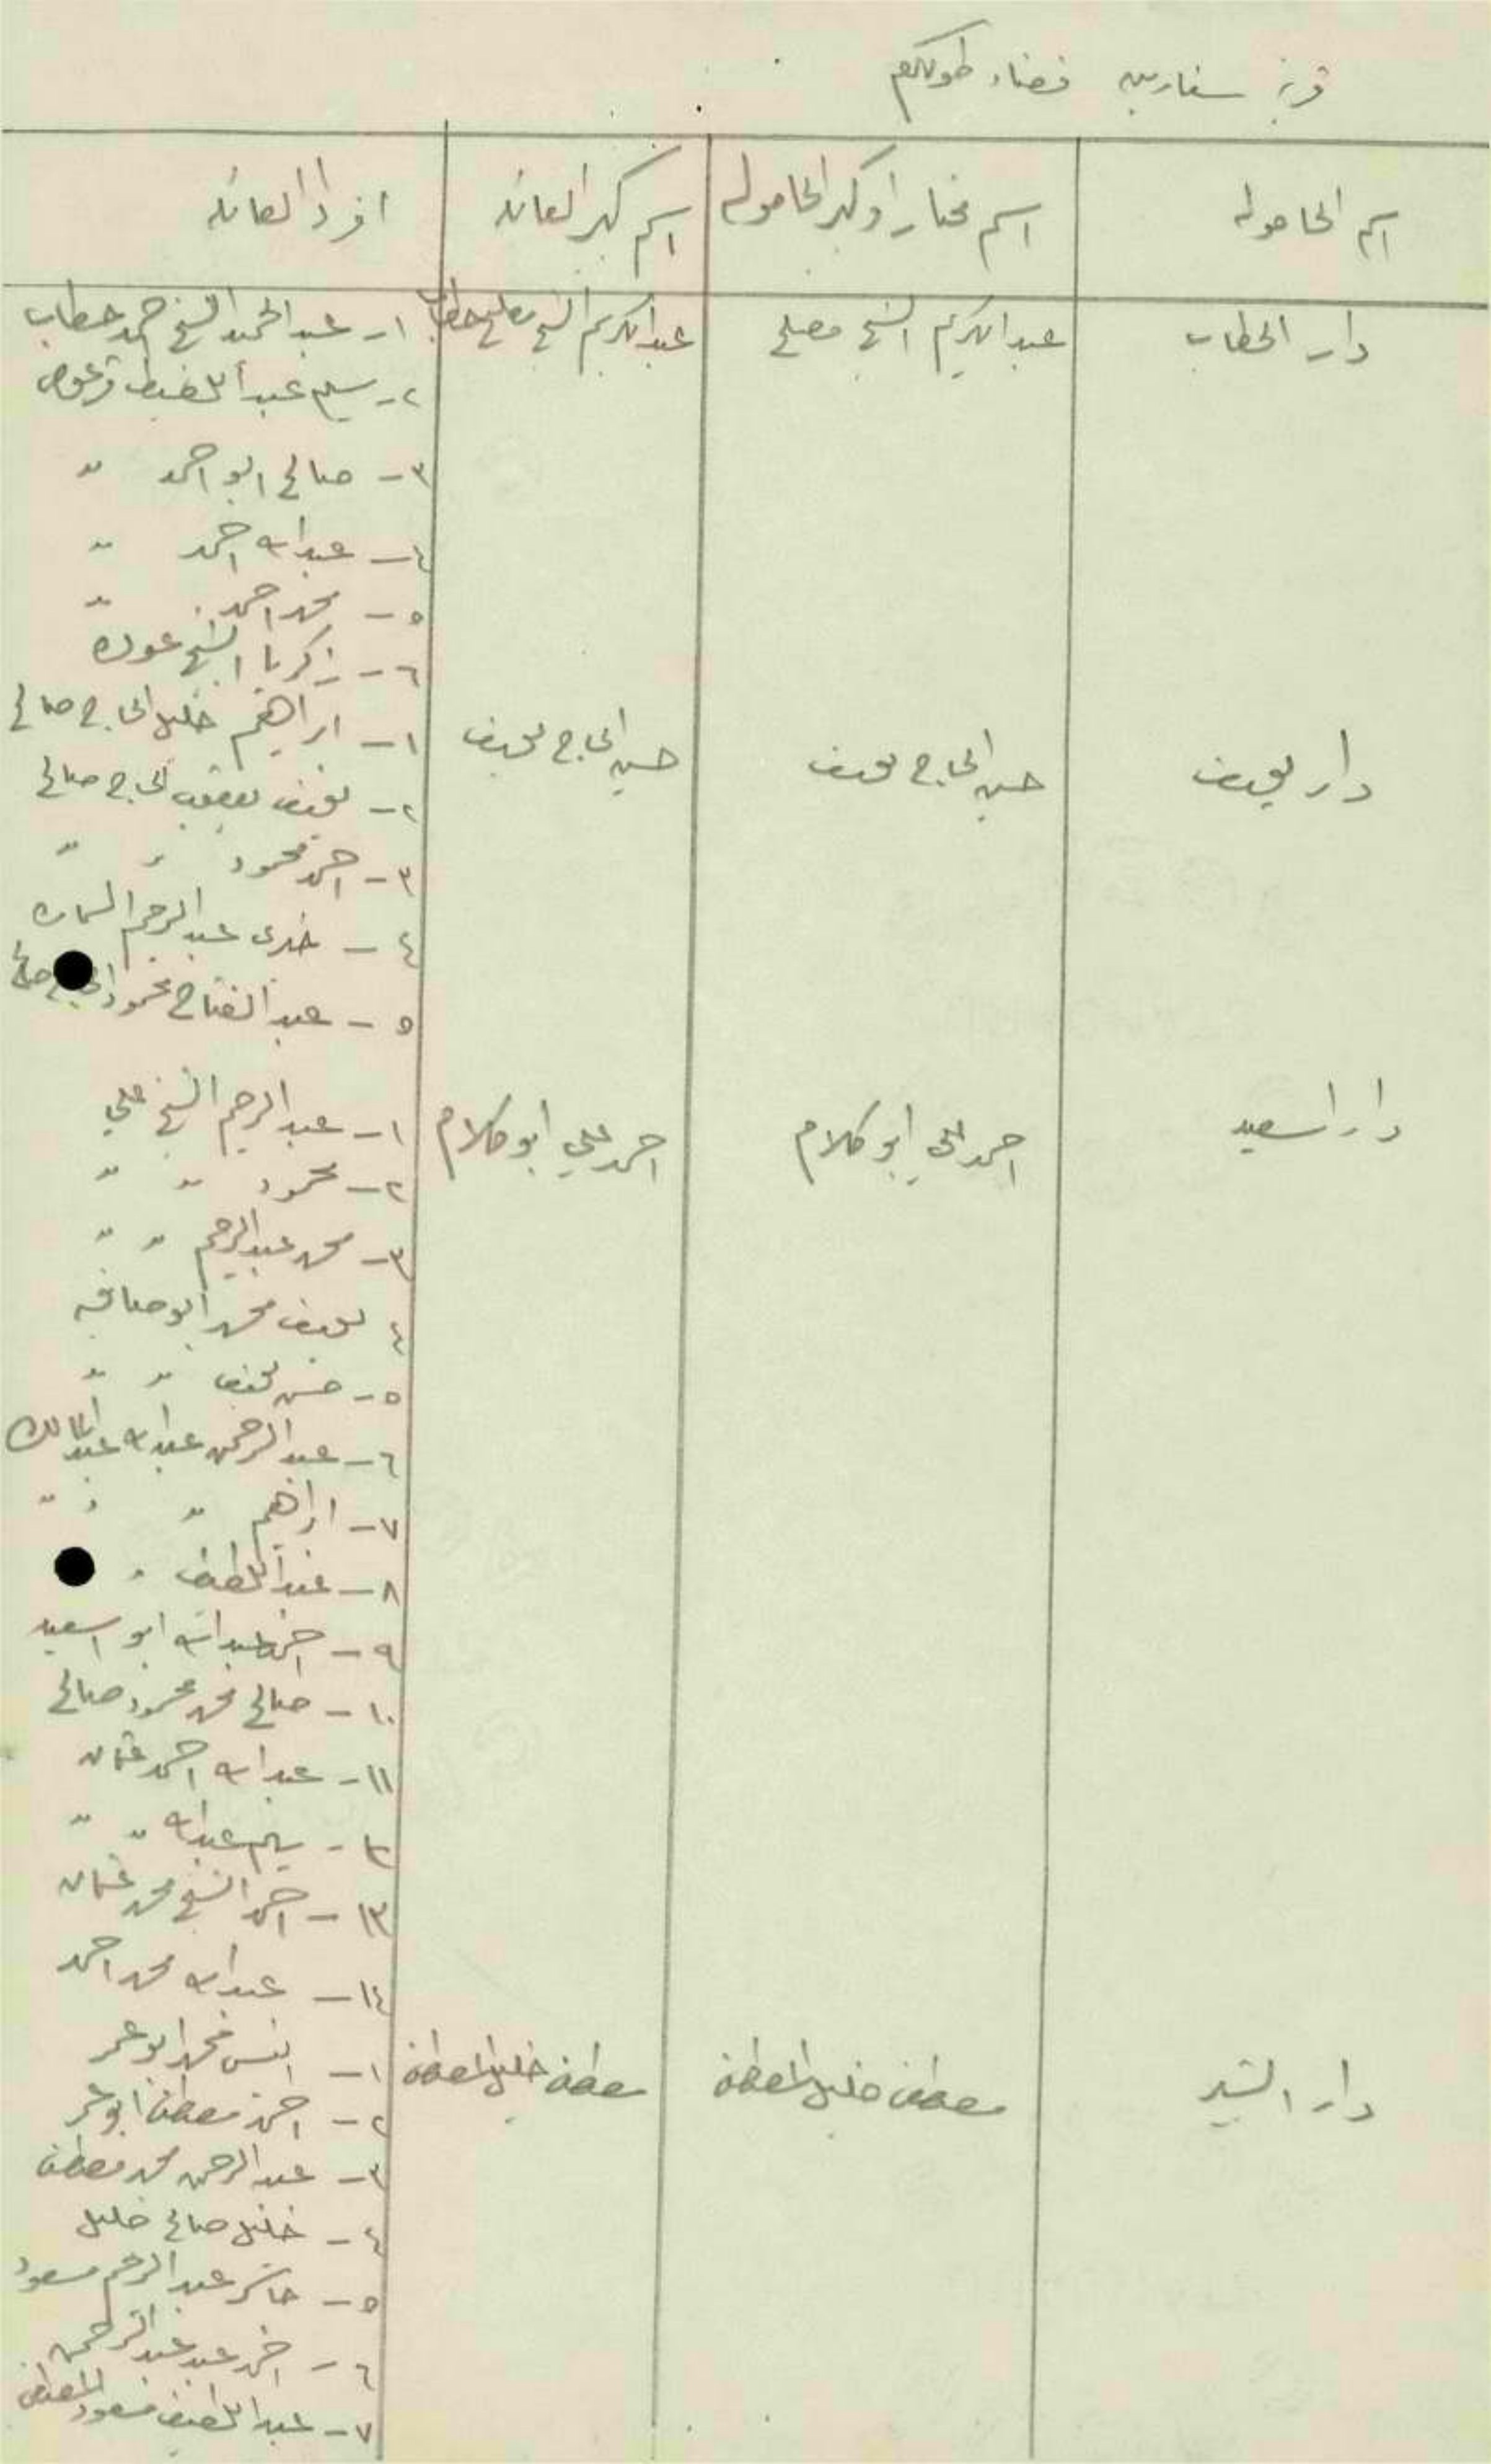 قرية سفارين قضاء طولكرم
اسم الحاموله
اسم مختار او كبير الحاموله
اسم كبير العائله
افراد العائله
دار الحطاب
عبدالكريم الشيخ مصلح
عبدالكريم الشيخ مصلح حطاب
١- عبدالحميد الشيخ احمد حطاب
٢- سليم عبد
٣- صالح ابو احمد "
٤- عبدالله احمد "
٥- محمد احمد "
٦- زكريا الشيخ عوده
دار يوسف
حسين الحاج يوسف
حسين الحاج يوسف
١- ابراهيم خليل الحاج صالح
٢- يوسف يعقوب الحاج صالح
٣- احمد محمود " "
٤- عبدالرحيم
٥- عبدالفتاح محمود الحاج صالح
دار اسعيد
احمد علي ابو كلام
احمد علي ابو كلام
١- عبدالرحيم الشيخ علي
٢- محمود " "
٣- محمد عبدالرحيم " "
٤ يوسف محمد ابو صافيه
٥- حسن يوسف " "
٦- عبدالرحمن عبدالله عبدالمالك
٧- ابراهيم " " "
٨- عبداللطيف "
٩- احمد عبدالله ابو اسعيد
١٠- صالح محمد محمود صالح
١١- عبدالله احمد عثمان
١٢- سليم عبدالله " "
١٣- احمد الشيخ محمد عثمان
١٤- عبدالله محمد احمد
دار
مصطفى خليل المصطفى
مصطفى خليل المصطفى
١- محمد ابو عمر
٢- احمد مصطفى ابو عمر
٣- عبدالرحمن محمد مصطفى
٤- خليل صالح خليل
٥- شاكر عبدالرحيم مسعود
٦- احمد عبد عبدالرحمن
٧- عبداللطيف مسعود المصطفى